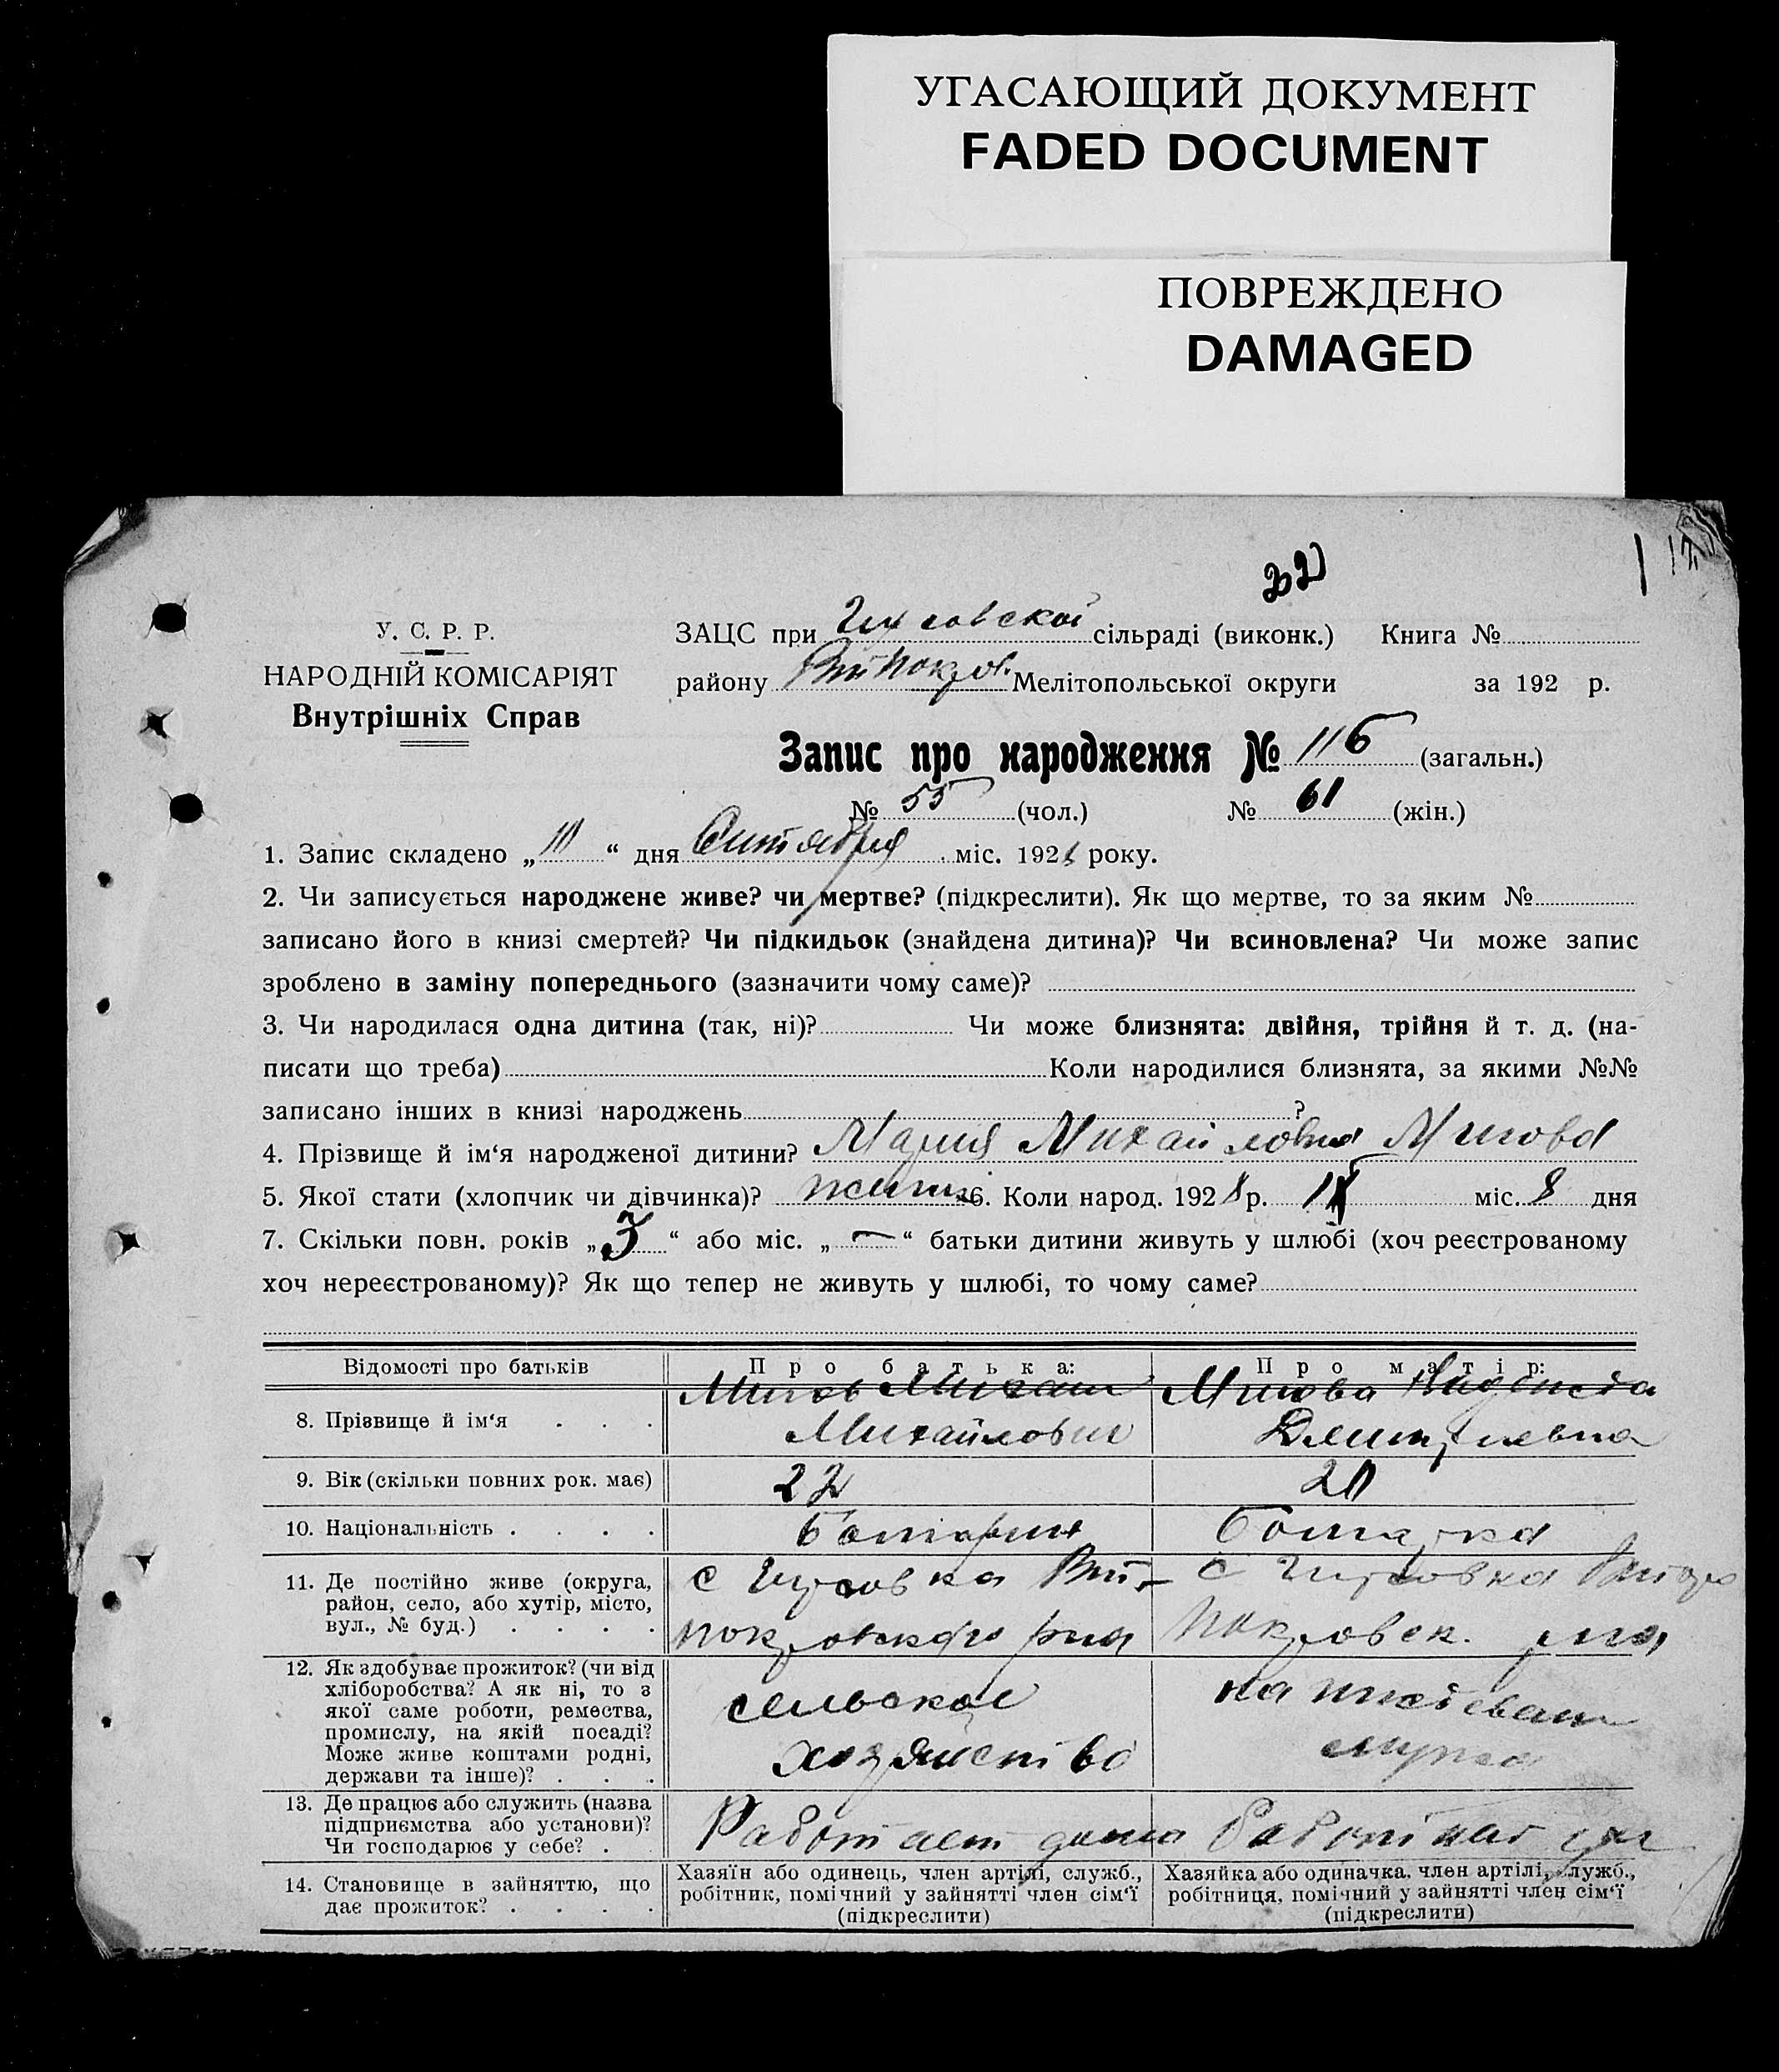 УГАСАЮЩИЙ ДОКУМЕНТ
FADED DOCUMENT
ПОВРЕЖДЕНО
DAMAGED
У. С. Р. Р.
НАРОДНІЙ КОМІСАРІЯТ
Внутрішніх Справ
ЗАЦС при сільраді (виконк.) Книга №
району Мелітопольської округи за 192 р.
Запис про народження № 116 (загальн.)
№ 55 (чол.) № 61 (жін.)
1. Запис складено „ “ дня Сентября міс. 192 року.
2. Чи записується народжене живе? чи мертве? (підкреслити). Як що мертве, то за яким №
записано його в книзі смертей? Чи підкидьок (знайдена дитина)? Чи всиновлена? Чи може запис
зроблено в заміну попереднього (зазначити чому саме)?
3. Чи народилася одна дитина (так, ні)? Чи може близнята: двійня, трійня й т. д. (на-
писати що треба) Коли народилися близнята, за якими №№
записано інших в книзі народжень ?
4. Прізвище й ім‘я народженої дитини? Мария Михайловна
5. Якої стати (хлопчик чи дівчинка)? 6. Коли народ. 1928 р. IX міс. 8 дня
7. Скільки повн. років „3“ або міс. „—“ батьки дитини живуть у шлюбі (хоч реєстрованому
хоч нереєстрованому)? Як що тепер не живуть у шлюбі, то чому саме?
Відомості про батьків Про батька: Про матір:
8. Прізвище й ім‘я . . . Михаил
Михайлович Дмитриевна
9. Вік (скільки повних рок. має) 22 20
10. Національність . . . . болгарин болгарка
11. Де постійно живе (округа,
район, село, або хутір, місто,
вул., № буд.) . . . .
покровского р-на покровск. р-на
12. Як здобуває прожиток? (чи від
хліборобства? А як ні, то з
якої саме роботи, ремества,
промислу, на якій посаді?
Може живе коштами родні,
держави та інше)? . . .
сельское
хозяйство
на иждевении
мужа
13. Де працює або служить (назва
підприємства або установи)?
Чи господарює у себе? .
Работает дома
14. Становище в зайняттю, що
дає прожиток? . . . .
Хазяїн або одинець, член артілі, служб.,
робітник, помічний у зайнятті член сім‘ї
(підкреслити)
Хазяйка або одиначка, член артілі, служб.,
робітниця, помічний у зайнятті член сім‘ї
(підкреслити)